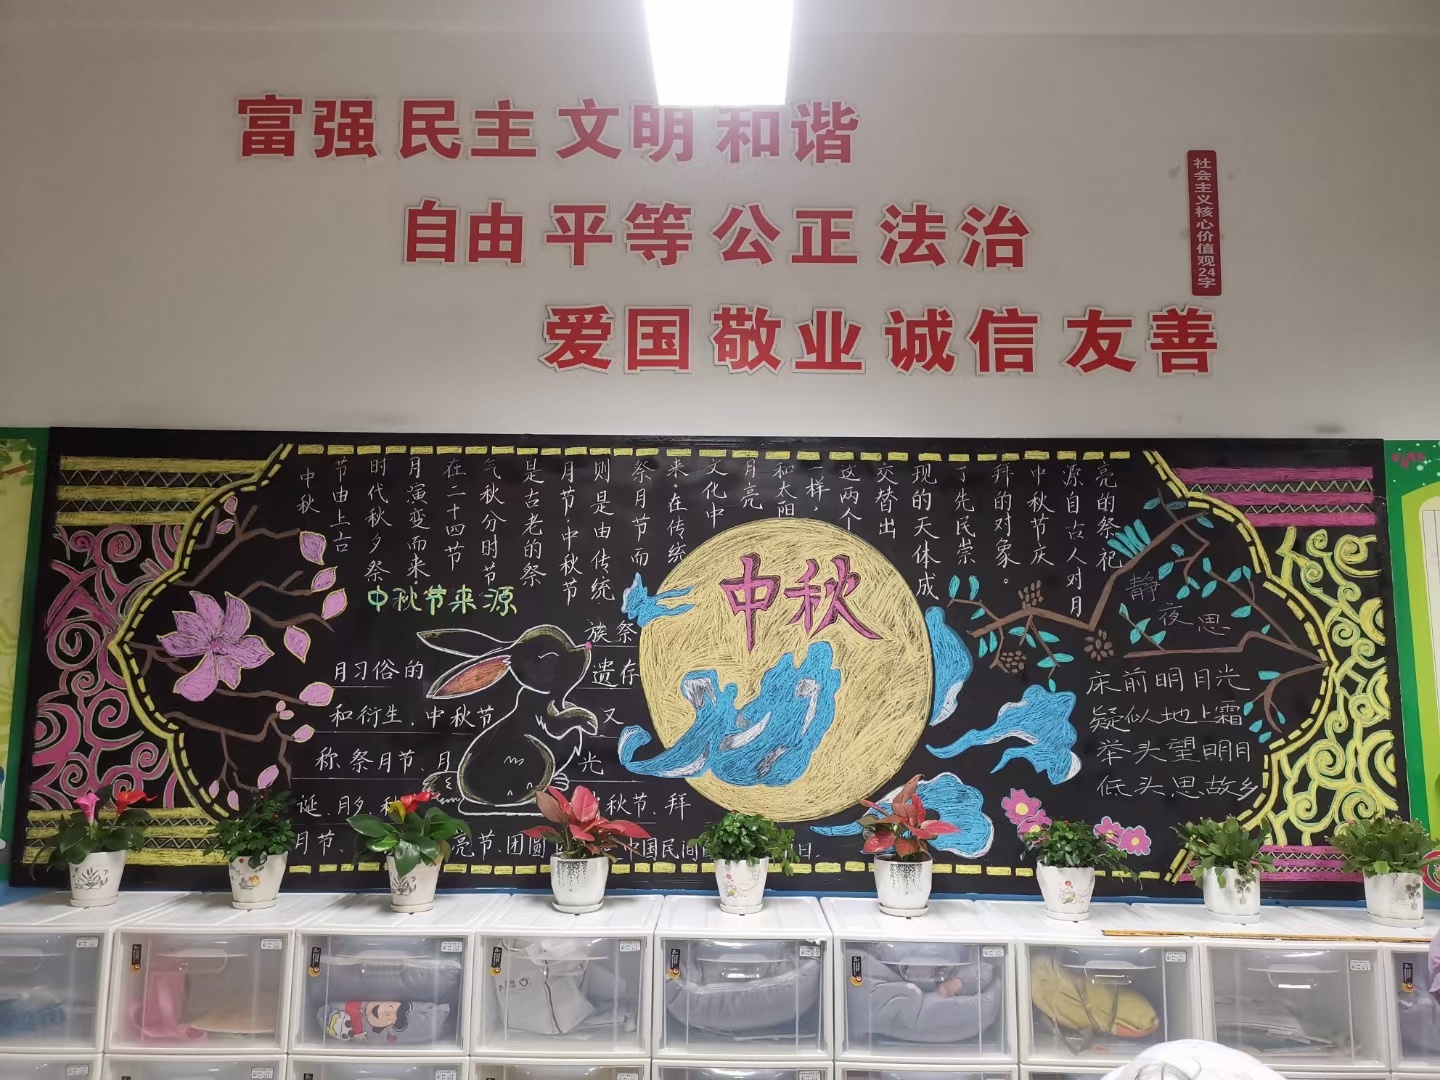 富强 民主 文明 和谐
自由 平等 公正 法治
爱国 敬业 诚信 友善
社会主义核心价值观24字
中秋
节由上古
时代秋夕祭
月演变而来
在二十四节
气秋分时节
是古老的祭
月节,中秋节
则是由传统
祭月节而
来。在传统
文化中
月亮
和太阳
一样,
这两个
交替出
现的天体成
了先民崇
拜的对象。
中秋节庆
源自古人对月
亮的祭祀
中秋节来源
族祭
月习俗的 遗存
和衍生.中秋节 又
称.祭月节、月 光
诞、月夕、秋 秋节、拜
月节、 亮节、团圆 中国民间
中秋
静夜思
床前明月光
疑似地上霜
举头望明月
低头思故乡